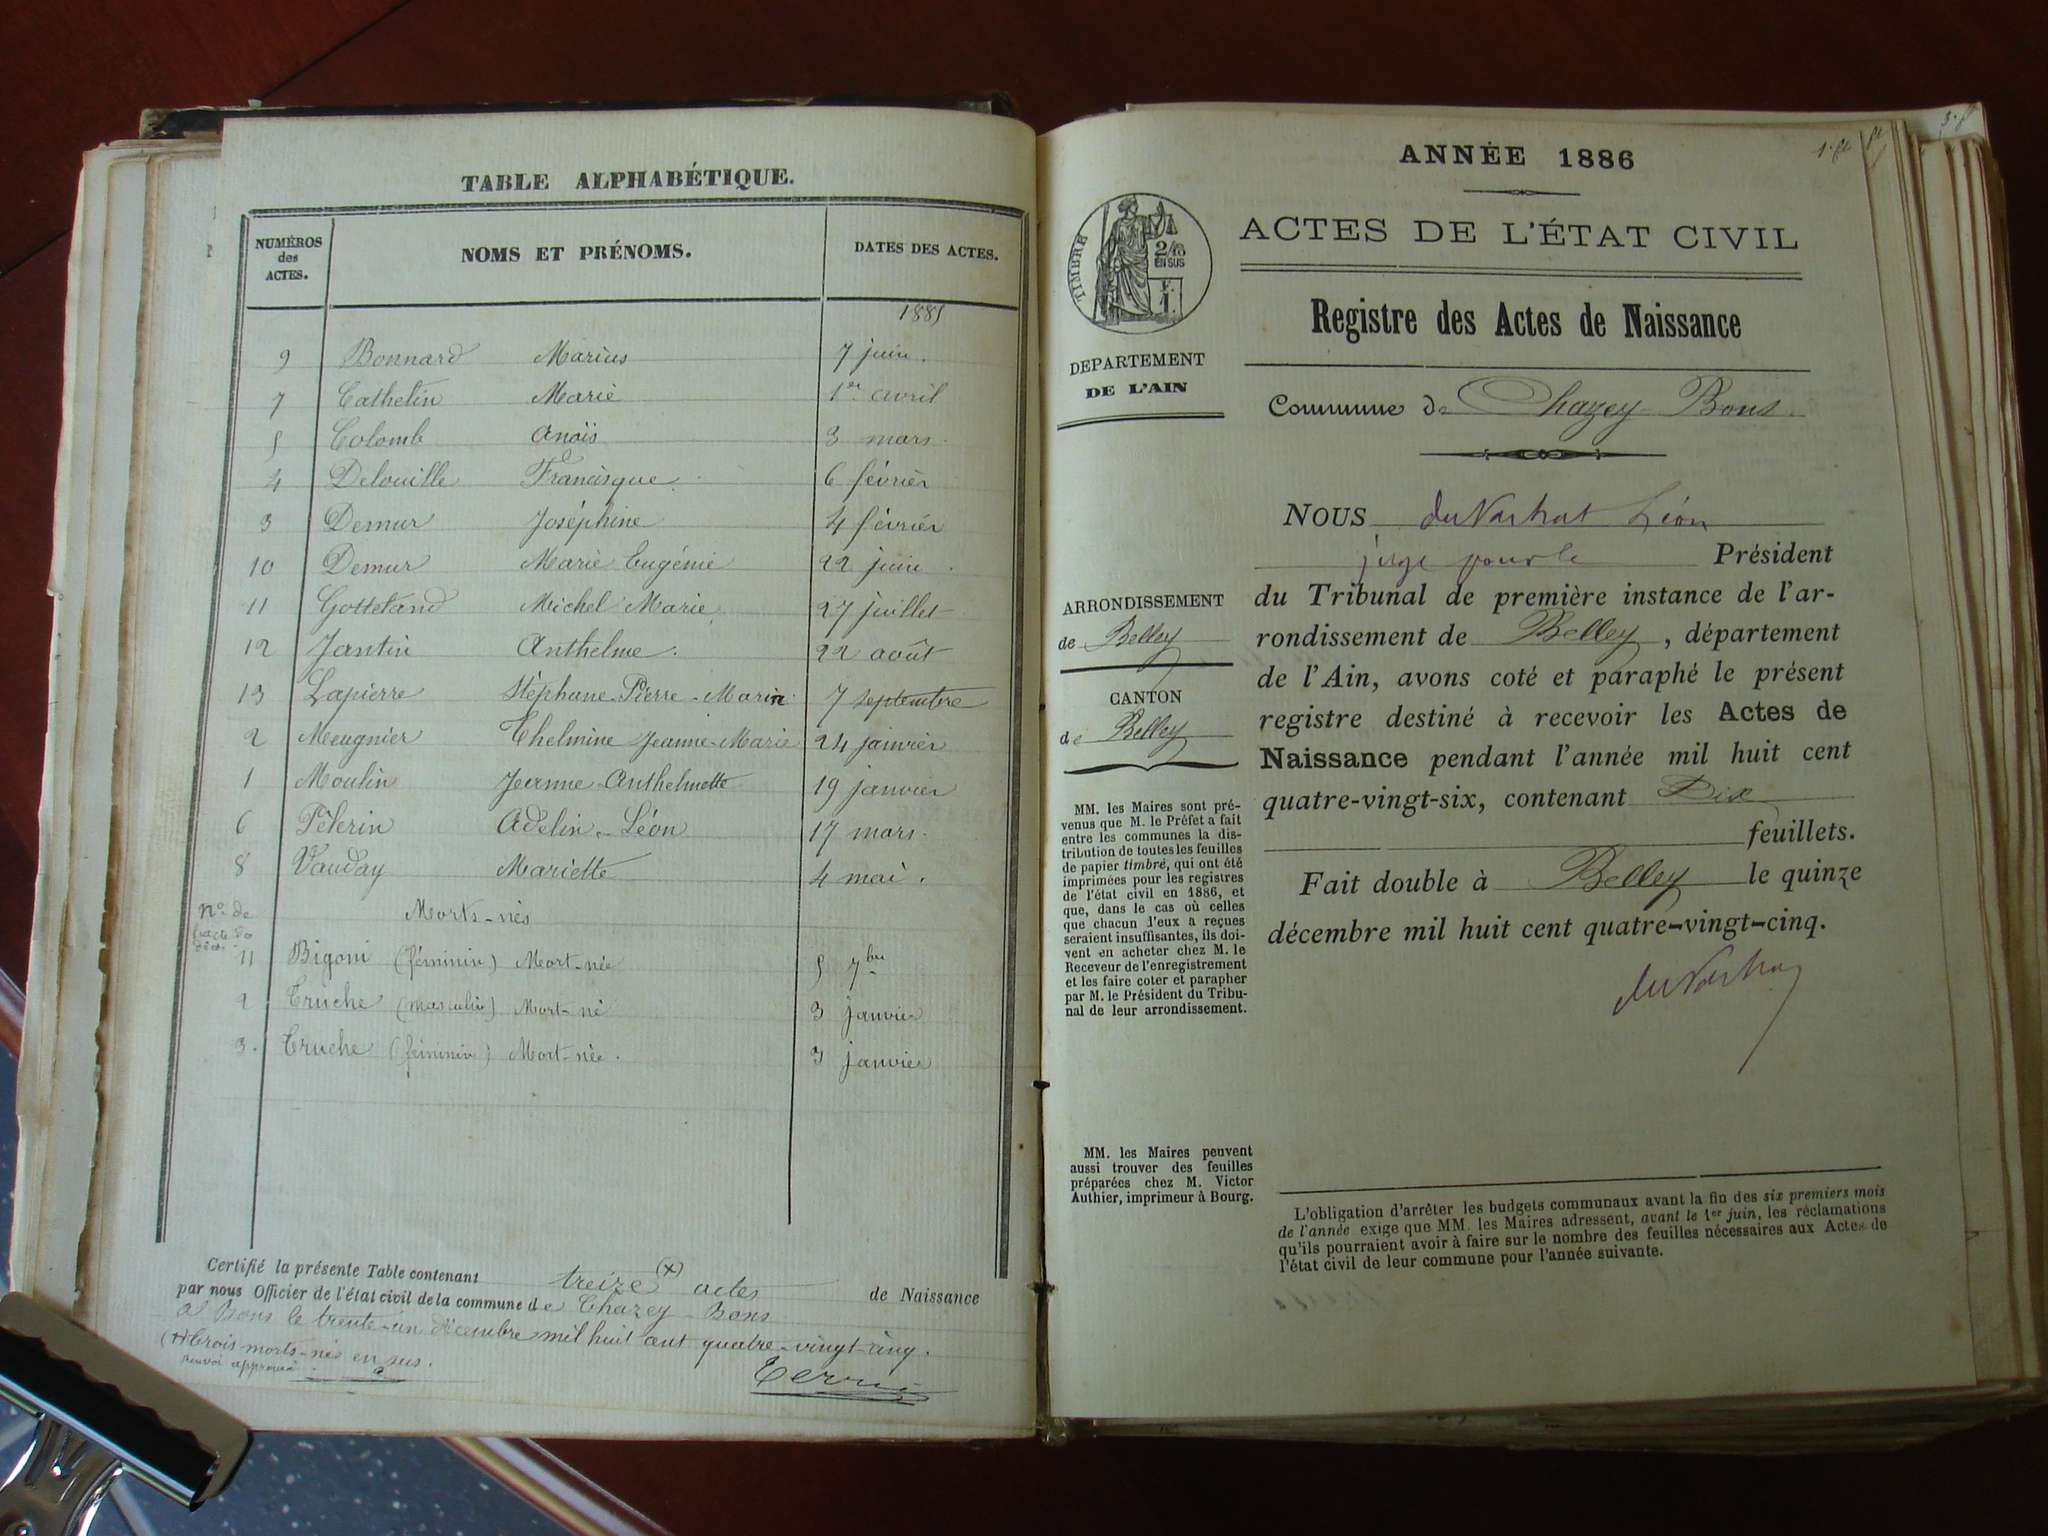 TABLE ALPHABÉTIQUE.
NUMÉROS des ACTES. NOMS ET PRÉNOMS. DATES DES ACTES.
1885
9 Bonnard Marius 7 juin.
7 Cathelin Marie 1er avril
5 Colomb Anaïs 3 mars.
4 Delouille Francisque. 6 février
3 Demur Joséphine 4 février
10 Demur Marie Eugénie 22 juin.
11 Gotteland Michel Marie. 27 juillet
12 Jantin Anthelme. 22 août
13 Lapierre Stéphane-Pierre-Marin. 7 septembre
2 Meugnier Thelmine Jeanne-Marie 24 janvier
1 Moulin Jeanne-Anthelmette 19 janvier
6 Pélerin Adelin-Léon 17 mars.
8 Vauday Mariette 4 mai.
no de l'acte de Morts-nés
11 Bigoni (féminin) Mort-née 5 7bre
2 Truche (masculin) Mort-né 3 janvier
3. Truche (féminin) Mort-née. 3 janvier
Certifié la présente Table contenant treize (x) actes de Naissance
par nous Officier de l'état civil de la commune de Chazey-Bons
à Bons le trente-un décembre mil huit cent quatre-vingt-cinq.
(x) Trois morts-nés en sus.
Renvoi approuvé
ANNÉE 1886
ACTES DE L'ÉTAT CIVIL
TIMBRE
2/10
EN SUS
Registre des Actes de Naissance
DEPARTEMENT
DE L'AIN
Commune de Chazey-Bons.
ARRONDISSEMENT
de Belley
CANTON
de Belley
MM. les Maires sont pré-
venus que M. le Préfet a fait
entre les communes la dis-
tribution de toutes les feuilles
de papier timbré, qui ont été
imprimées pour les registres
de l'état civil en 1886, et
que, dans le cas où celles
que chacun d'eux a reçues
seraient insuffisantes, ils doi-
vent en acheter chez M. le
Receveur de l'enregistrement
et les faire coter et parapher
par M. le Président du Tribu-
nal de leur arrondissement.
MM. les Maires peuvent
aussi trouver des feuilles
préparées chez M. Victor
Authier, imprimeur à Bourg.
NOUS Léon
juge pour le Président
du Tribunal de première instance de l'ar-
rondissement de Belley, département
de l'Ain, avons coté et paraphé le présent
registre destiné à recevoir les Actes de
Naissance pendant l'année mil huit cent
quatre-vingt-six, contenant Dix
feuillets.
Fait double à Belley le quinze
décembre mil huit cent quatre-vingt-cinq.
L'obligation d'arrêter les budgets communaux avant la fin des six premiers mois
de l'année exige que MM. les Maires adressent, avant le 1er juin, les réclamations
qu'ils pourraient avoir à faire sur le nombre des feuilles nécessaires aux Actes de
l'état civil de leur commune pour l'année suivante.